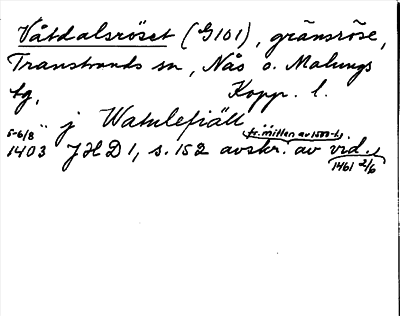 Våtdalsröset (G101), gränsröse,
Transtrands sn, Nås o. Malungs
tg, Kopp. l.
j Watulefiäll
5-6/8 fr. mitten av 1500-t.
1403 JHD 1, s. 152 avskr. av vid.
1461 2/6